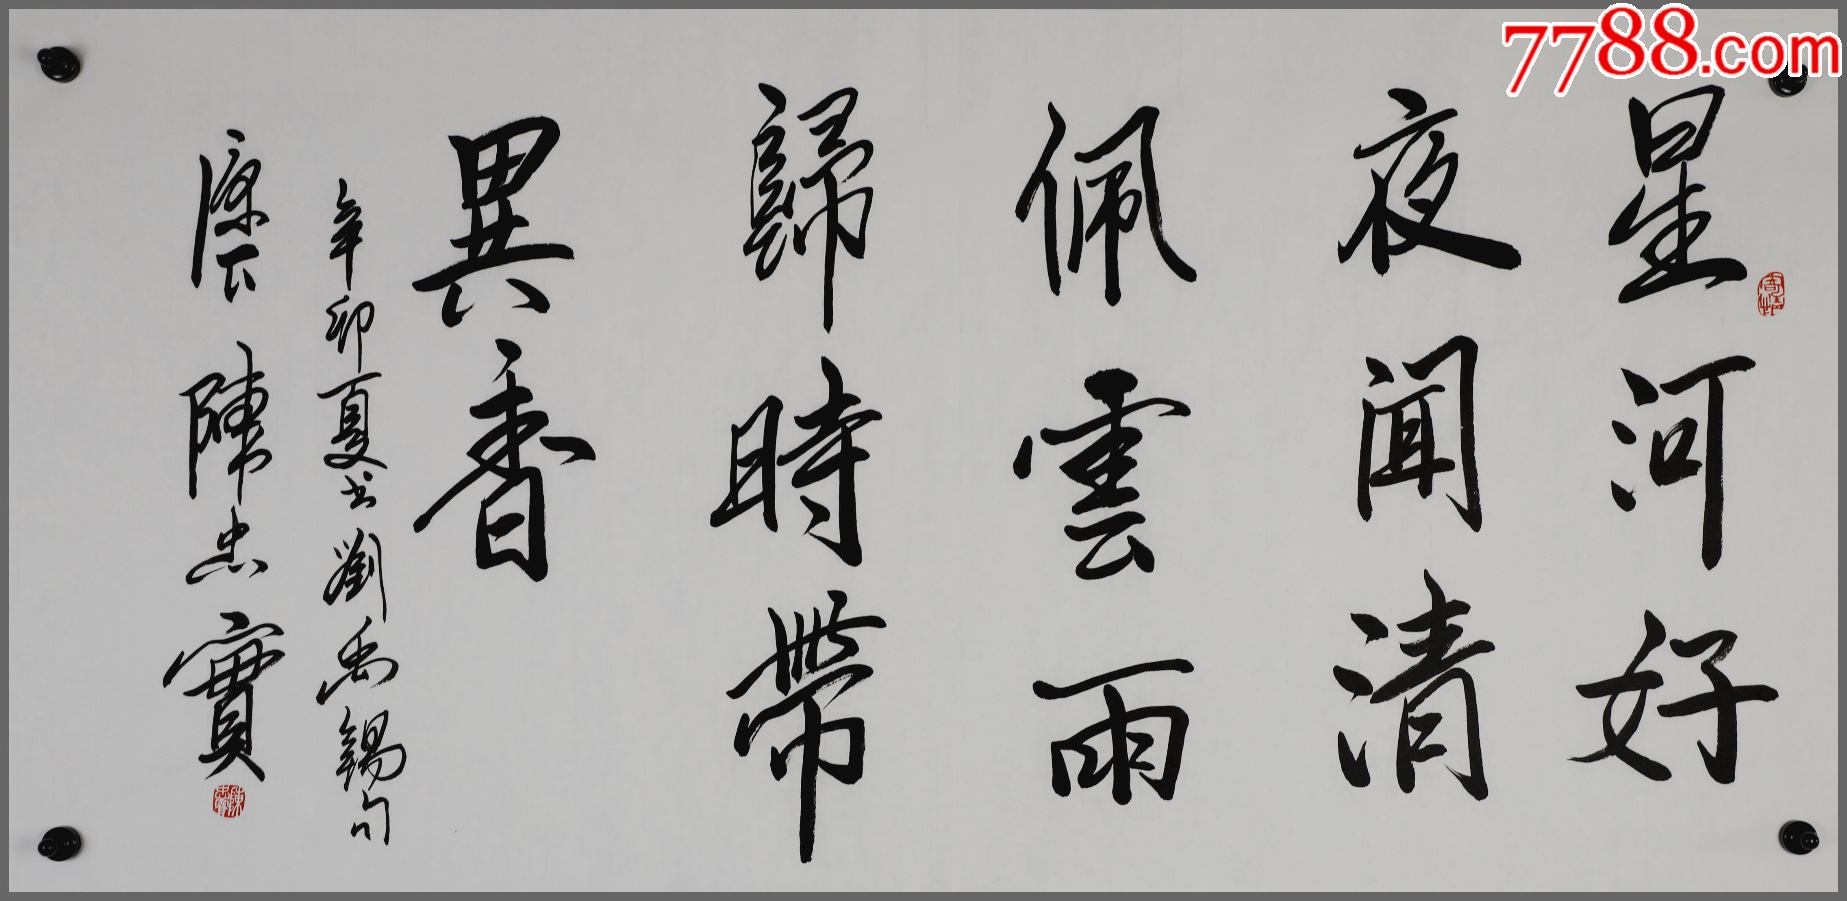 星河好
夜闻清
佩雲雨
歸時帶
異香
辛卯夏书劉禹錫句
原下陳忠實
7788.com